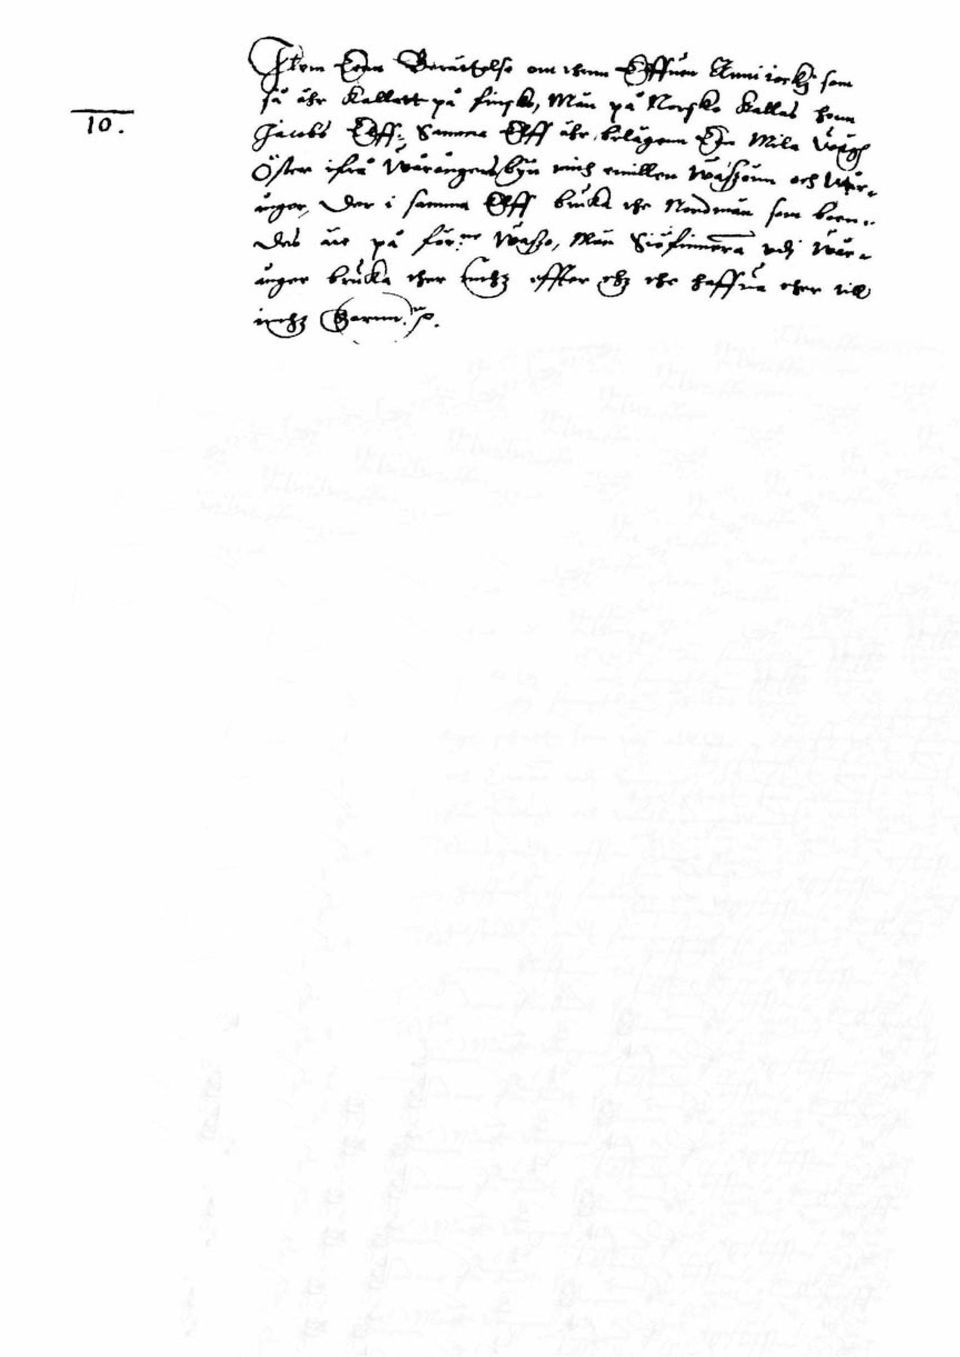 Item Een Berättelse om then Elffuen Annijocki som
så ähr Kallatt på finsko, Män på Norsko Kallas henn
Jacobs Elff: Samma Elff ähr belägenn Een Mila Vägh
Öster ifrå Waranger emillen Waszöun och War-
anger, Der i samma Elff bruka the Nordmän som boen-
des äre på för:ne Waszo, Män Siöfinnerna vdj War-
anger bruka ther inthz effter thz the haffua ther till
inthz Garnn.
10.